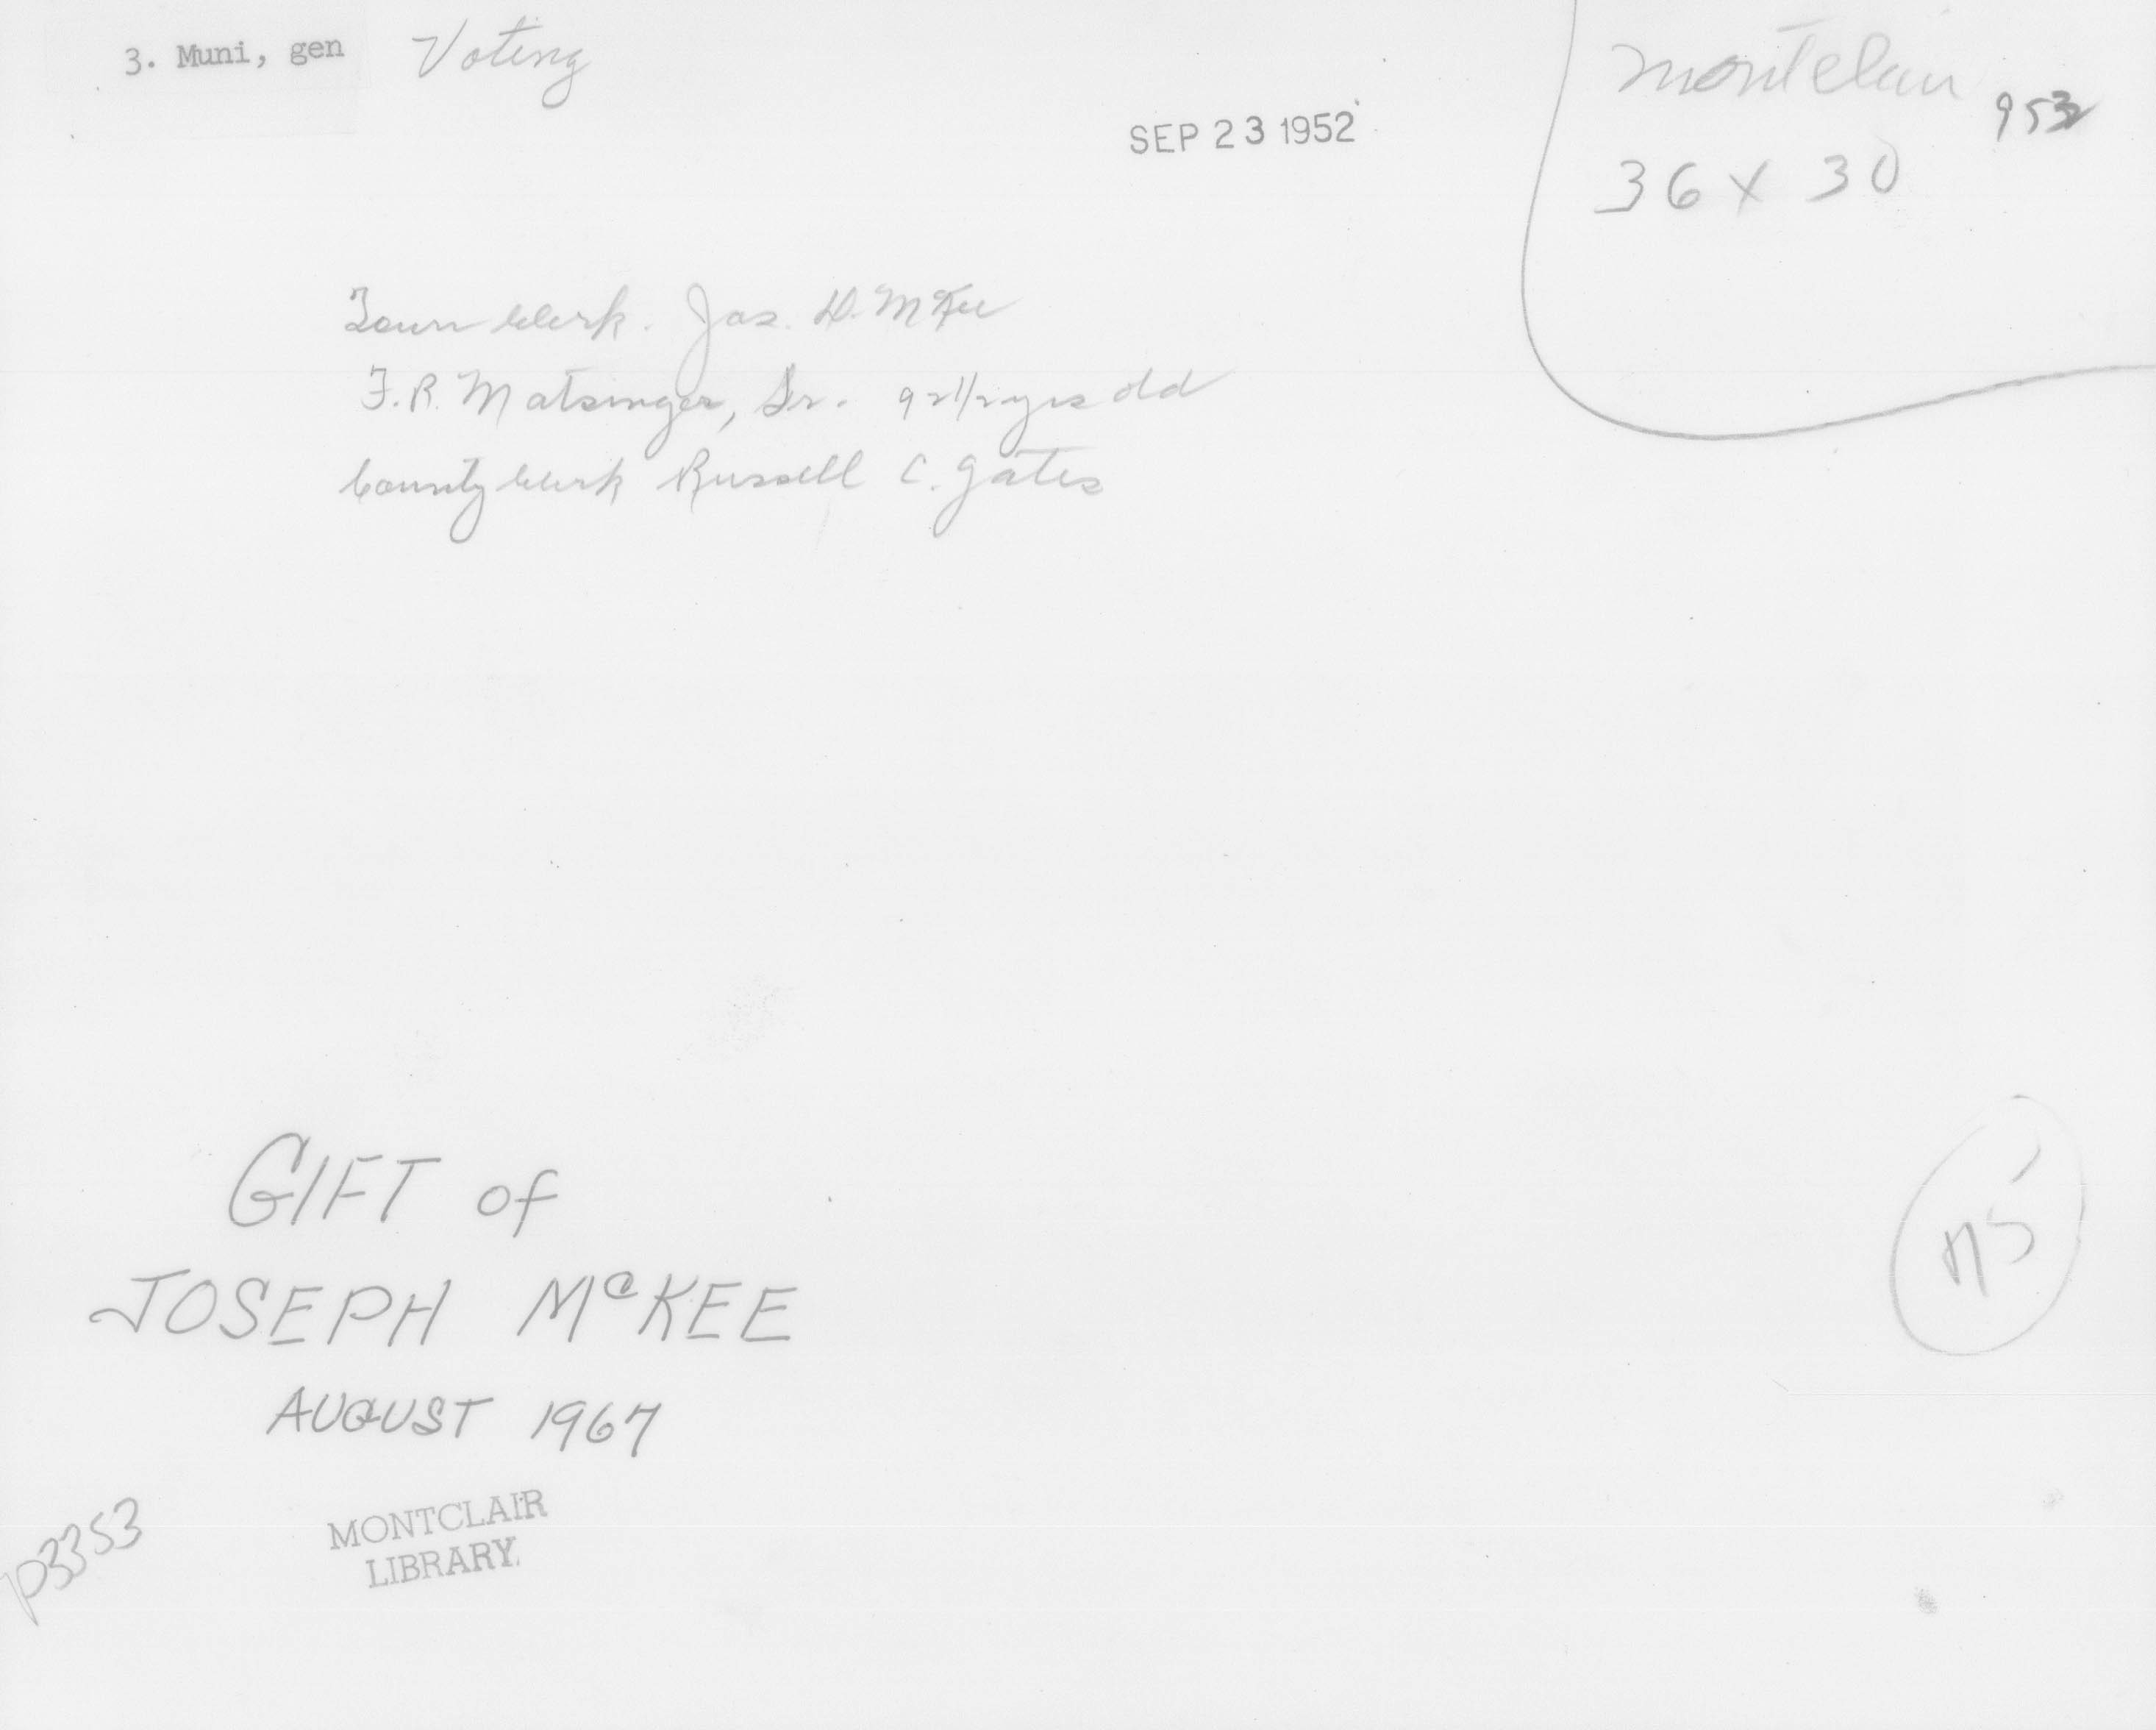 3. Muni, gen Voting
SEP 23 1952
Montclair
36 x 30
Town Clerk. Jas. D. McKee
F. R. Matsinger, Sr. 92 1/2 yrs old
County Clerk Russell C. Gates
GIFT of
JOSEPH McKEE
AUGUST 1967
MONTCLAIR
LIBRARY
p3353